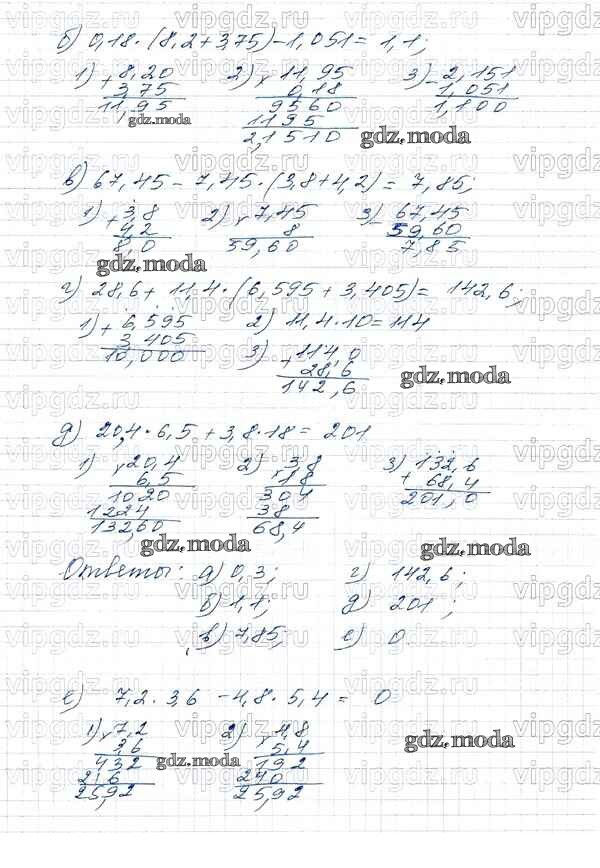 б) 0,18 · (8,2 + 3,75) - 1,051 = 1,1;
1) + 8,20 2) × 11,95 3) - 2,151
3,75 0,18 1,051
11,95 9560 1,100
1195
2,1510
gdz.moda
gdz.moda
в) 67,45 - 7,45 · (3,8 + 4,2) = 7,85;
1) + 3,8 2) × 7,45 3) - 67,45
4,2 8 59,60
8,0 59,60 7,85
gdz.moda
г) 28,6 + 11,4 · (6,595 + 3,405) = 142,6;
1) + 6,595 2) 11,4 · 10 = 114
3,405 3) + 114,0
10,000 28,6
142,6
gdz.moda
д) 20,4 · 6,5 + 3,8 · 18 = 201
1) × 20,4 2) × 3,8 3) 132,6
6,5 18 + 68,4
1020 304 201,0
1224 38
132,60 68,4
gdz.moda gdz.moda
Ответы: а) 0,3; г) 142,6;
б) 1,1; д) 201;
в) 7,85; е) 0.
е) 7,2 · 3,6 - 4,8 · 5,4 = 0
1) × 7,2 2) × 4,8
3,6 5,4
432 192
216 240
25,92 25,92
gdz.moda gdz.moda
gdz.moda
vipgdz.ru